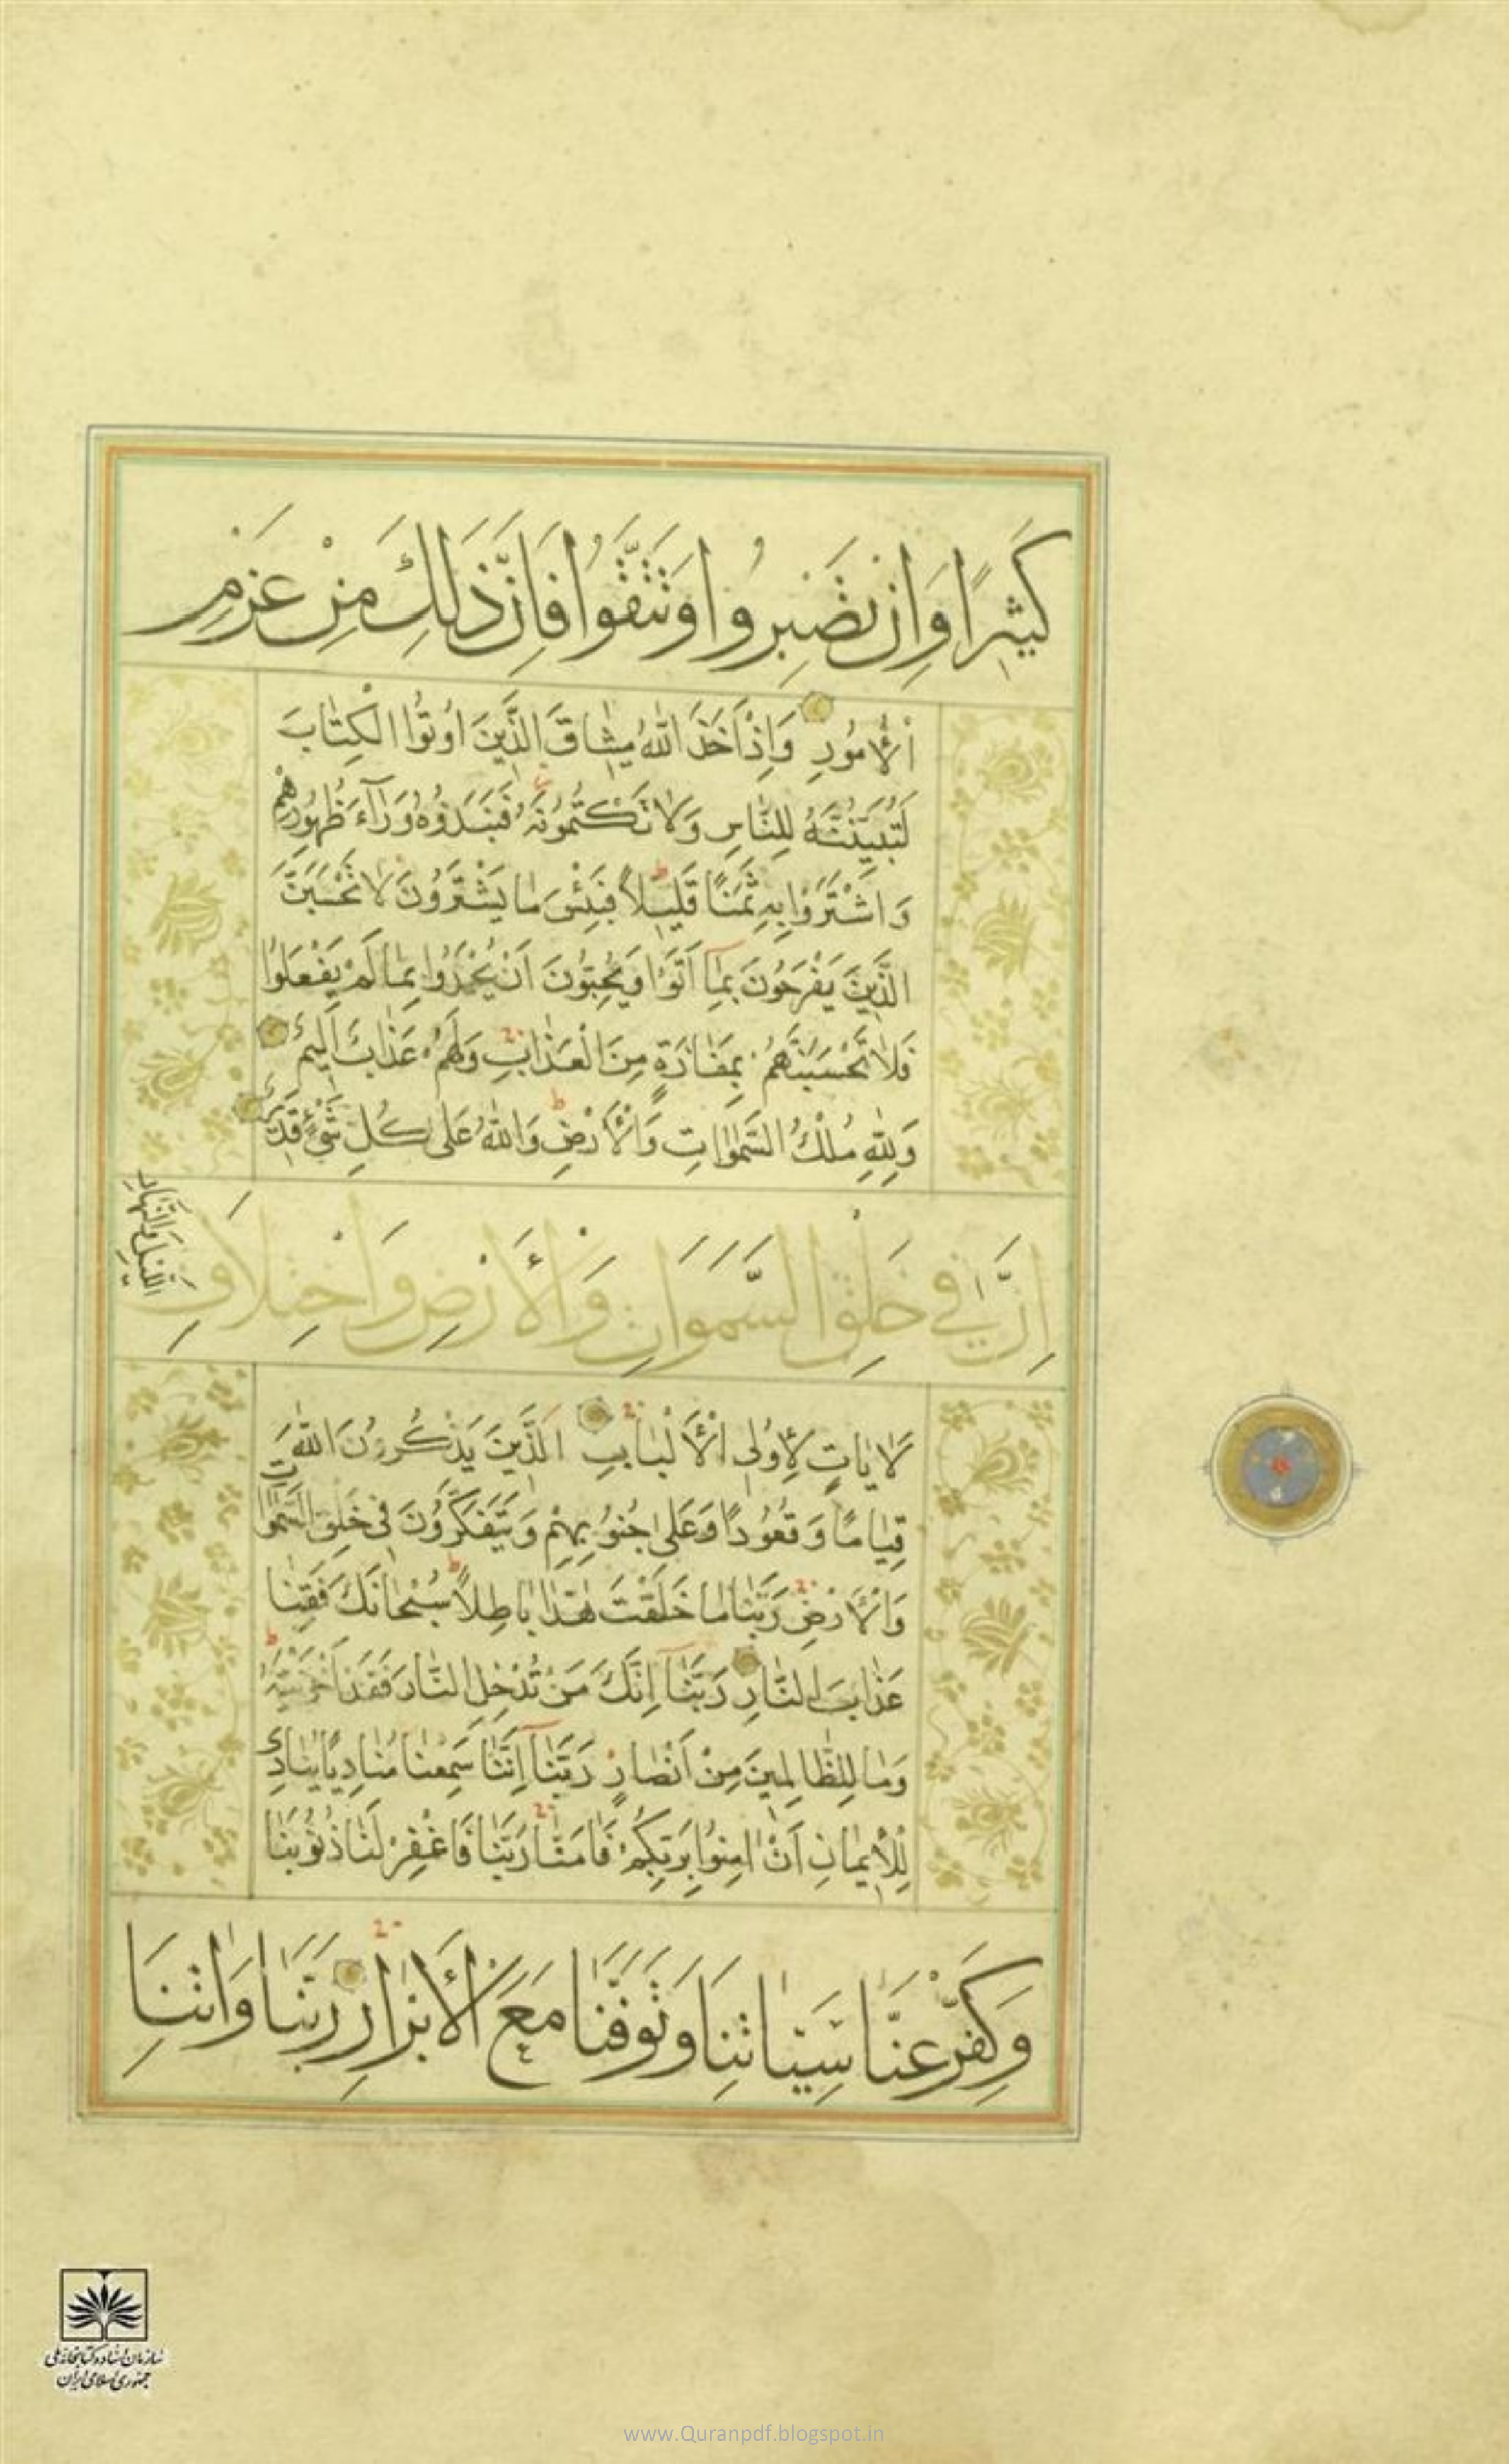 كَثِيرًا وَاِنْ تَصْبِرُوا وَتَتَّقُوا فَاِنَّ ذَلِكَ مِنْ عَزْمِ
اْلاُمُورِ وَاِذْ اَخَذَ اللّٰهُ مِيثٰاقَ الَّذِينَ اُوتُوا الْكِتٰابَ
لَتُبَيِّنُنَّهُ لِلنّٰاسِ وَلاٰ تَكْتُمُونَهُ فَنَبَذُوهُ وَرٰآءَ ظُهُورِهِمْ
وَاشْتَرَوْا بِهِ ثَمَنًا قَلِيلاً فَبِئْسَ مٰا يَشْتَرُونَ لاٰ تَحْسَبَنَّ
الَّذِينَ يَفْرَحُونَ بِمٰآ اَتَوْا وَيُحِبُّونَ اَنْ يُحْمَدُوا بِمٰا لَمْ يَفْعَلُوا
فَلاٰ تَحْسَبَنَّهُمْ بِمَفٰازَةٍ مِنَ الْعَذٰابِ وَلَهُمْ عَذٰابٌ اَلِيمٌ
وَلِلّٰهِ مُلْكُ السَّمٰوٰاتِ وَاْلاَرْضِ وَاللّٰهُ عَلٰى كُلِّ شَيْءٍ قَدِيرٌ
اِنَّ فِي خَلْقِ السَّمَوَاتِ وَاْلاَرْضِ وَاخْتِلاَفِ
اللَّيْلِ وَالنَّهَارِ
َلاٰيٰاتٍ ِلاُولِى اْلاَلْبٰابِ اَلَّذِينَ يَذْكُرُونَ اللّٰهَ
قِيٰامًا وَقُعُودًا وَعَلٰى جُنُوبِهِمْ وَيَتَفَكَّرُونَ فِي خَلْقِ السَّمٰوٰاتِ
وَاْلاَرْضِ رَبَّنٰا مٰا خَلَقْتَ هٰذٰا بٰاطِلاً سُبْحٰانَكَ فَقِنٰا
عَذٰابَ النّٰارِ رَبَّنٰآ اِنَّكَ مَنْ تُدْخِلِ النّٰارَ فَقَدْ اَخْزَيْتَهُ
وَمٰا لِلظّٰالِمِينَ مِنْ اَنْصٰارٍ رَبَّنٰآ اِنَّنٰا سَمِعْنٰا مُنٰادِيًا يُنٰادِي
لِلْاِيمٰانِ اَنْ اٰمِنُوا بِرَبِّكُمْ فَاٰمَنّٰا رَبَّنٰا فَاغْفِرْ لَنٰا ذُنُوبَنٰا
وَكَفِّرْ عَنَّا سَيِّئَاتِنَا وَتَوَفَّنَا مَعَ الْاَبْرَارِ رَبَّنَا وَاٰتِنَا
سازمان اسناد و کتابخانه ملی
جمهوری اسلامی ایران
www.Quranpdf.blogspot.in